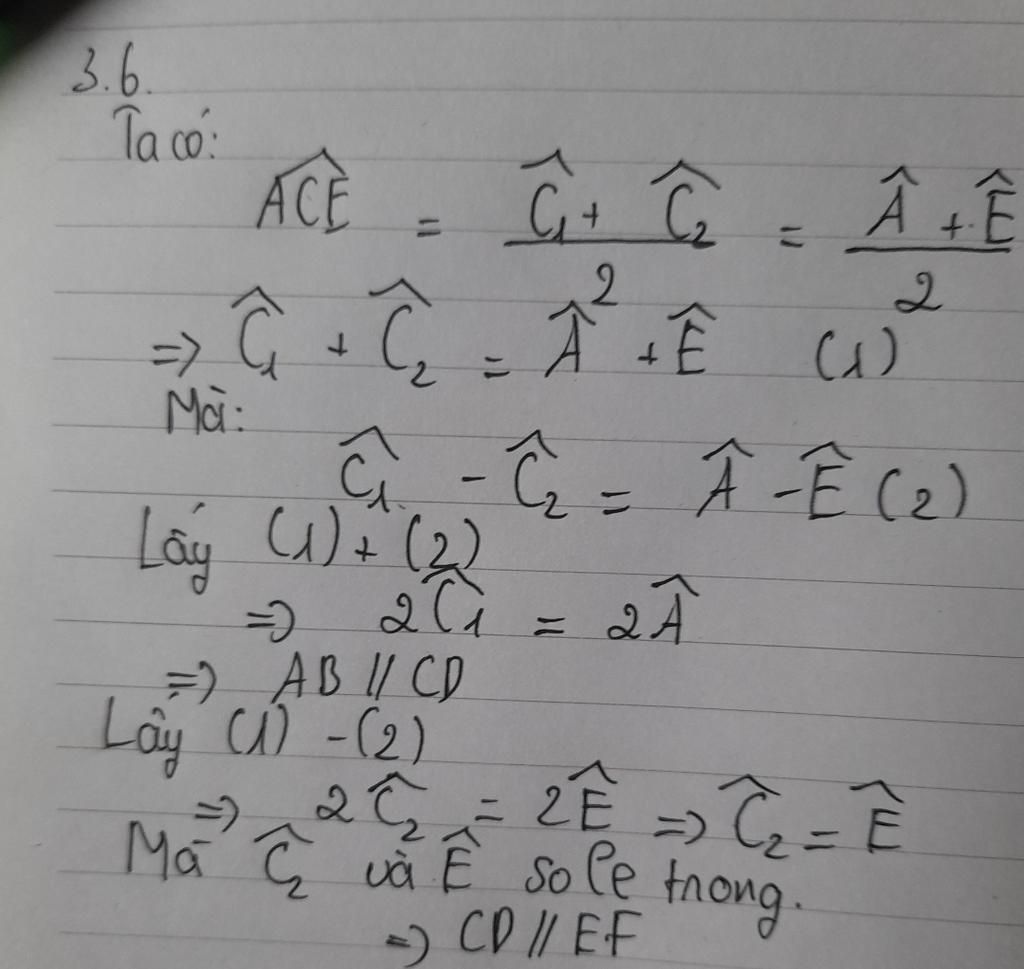 3.6.
Ta có:
$\widehat{ACE} = \frac{\widehat{C_1} + \widehat{C_2}}{2} = \frac{\widehat{A} + \widehat{E}}{2}$
=> $\widehat{C_1} + \widehat{C_2} = \widehat{A} + \widehat{E}$ (1)
Mà:
$\widehat{C_1} - \widehat{C_2} = \widehat{A} - \widehat{E}$ (2)
Lấy (1) + (2)
=> $2\widehat{C_1} = 2\widehat{A}$
=> AB // CD
Lấy (1) - (2)
=> $2\widehat{C_2} = 2\widehat{E}$ => $\widehat{C_2} = \widehat{E}$
Mà $\widehat{C_2}$ và $\widehat{E}$ so le trong.
=> CD // EF